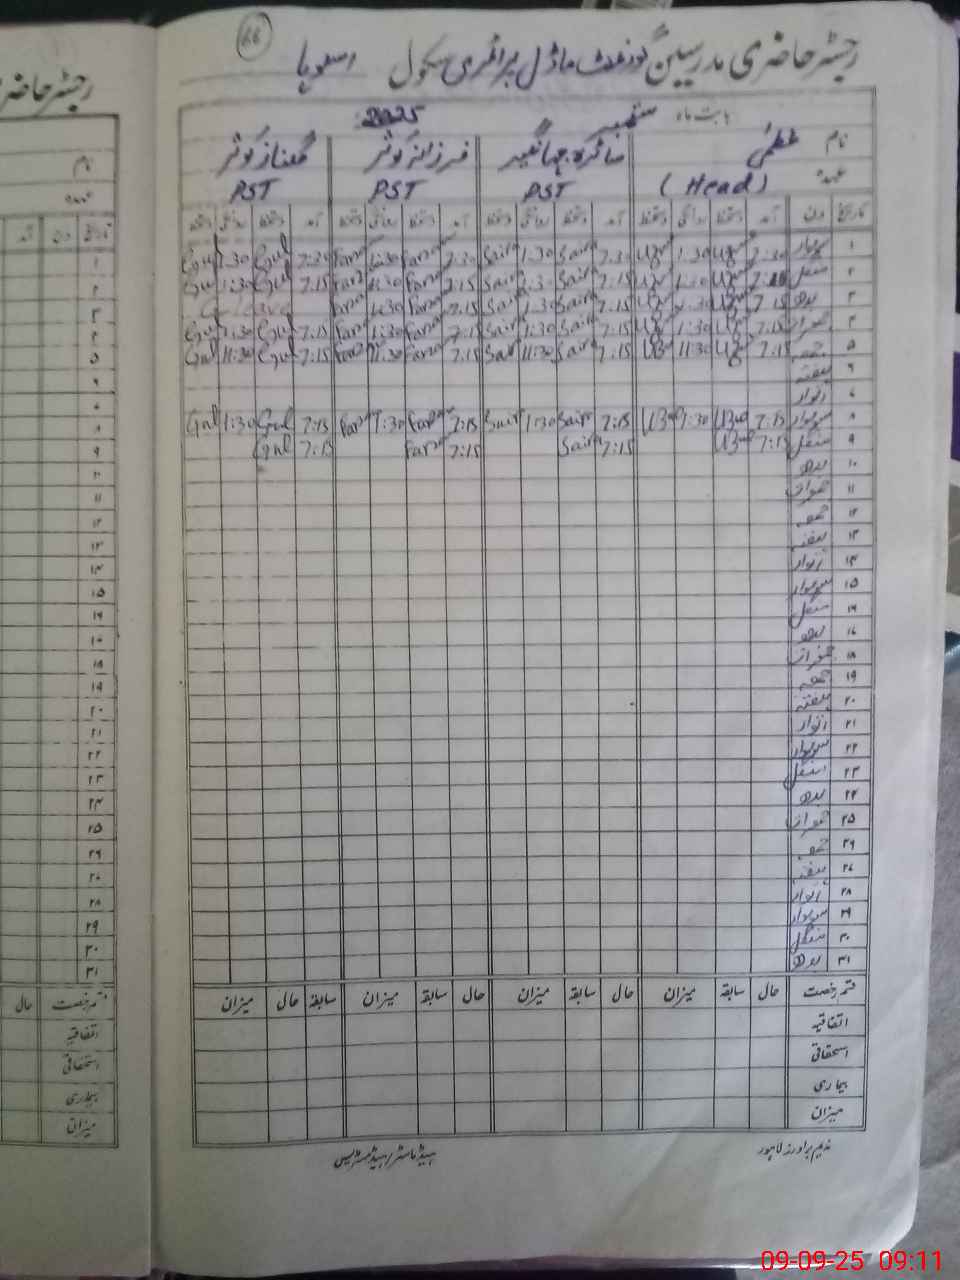 66
رجسٹر حاضری مدرسین گورنمنٹ ماڈل پرائمری سکول
بابت ماہ ستمبر 2025
نام عظمیٰ سائرہ جہانگیر فرزانہ کوثر گلناز کوثر
عہدہ (Head) PST PST PST
تاریخ دن آمد دستخط روانگی دستخط آمد دستخط روانگی دستخط آمد دستخط روانگی دستخط آمد دستخط روانگی دستخط
۱ سوموار 7:30 1:30 7:30 Saira 1:30 Saira 7:30 Farz 1:30 Farz 7:30 Gul 1:30 Gul
۲ منگل 7:15 Saira 1:30 Saira 7:15 Farz 1:30 Farz 7:15 Gul 1:30 Gul
۳ بدھ 7:15 1:30 7:15 Saira 1:30 Saira 7:15 Farz 1:30 Farz leave
۴ جمعرات 7:15 1:30 7:15 Saira 1:30 Saira 7:15 Farz 1:30 Farz 7:15 Gul 1:30 Gul
۵ جمعہ 7:15 11:30 7:15 Saira 11:30 Saira 7:15 Farz 11:30 Farz 7:15 Gul 11:30 Gul
۶ ہفتہ
۷ اتوار
۸ سوموار 7:15 Uzma 1:30 Uzma 7:15 Saira 1:30 Saira 7:15 Farz 1:30 Farz 7:15 Gul 1:30 Gul
۹ منگل 7:15 Uzma 7:15 Saira 7:15 Farz 7:15 Gul
۱۰ بدھ
۱۱ جمعرات
۱۲ جمعہ
۱۳ ہفتہ
۱۴ اتوار
۱۵ سوموار
۱۶ منگل
۱۷ بدھ
۱۸ جمعرات
۱۹ جمعہ
۲۰ ہفتہ
۲۱ اتوار
۲۲ سوموار
۲۳ منگل
۲۴ بدھ
۲۵ جمعرات
۲۶ جمعہ
۲۷ ہفتہ
۲۸ اتوار
۲۹ سوموار
۳۰ منگل
۳۱ بدھ
قسم رخصت حال سابقہ میزان حال سابقہ میزان حال سابقہ میزان حال سابقہ میزان
اتفاقیہ
استحقاقی
بیماری
میزان
ندیم برادرز لاہور
ہیڈ ماسٹر/ہیڈ مسٹریس
رجسٹر حاضر
نام
عہدہ
تاریخ دن آمد
۱
۲
۳
۴
۵
۶
۷
۸
۹
۱۰
۱۱
۱۲
۱۳
۱۴
۱۵
۱۶
۱۷
۱۸
۱۹
۲۰
۲۱
۲۲
۲۳
۲۴
۲۵
۲۶
۲۷
۲۸
۲۹
۳۰
۳۱
قسم رخصت حال
اتفاقیہ
استحقاقی
بیماری
میزان
09-09-25 09:11